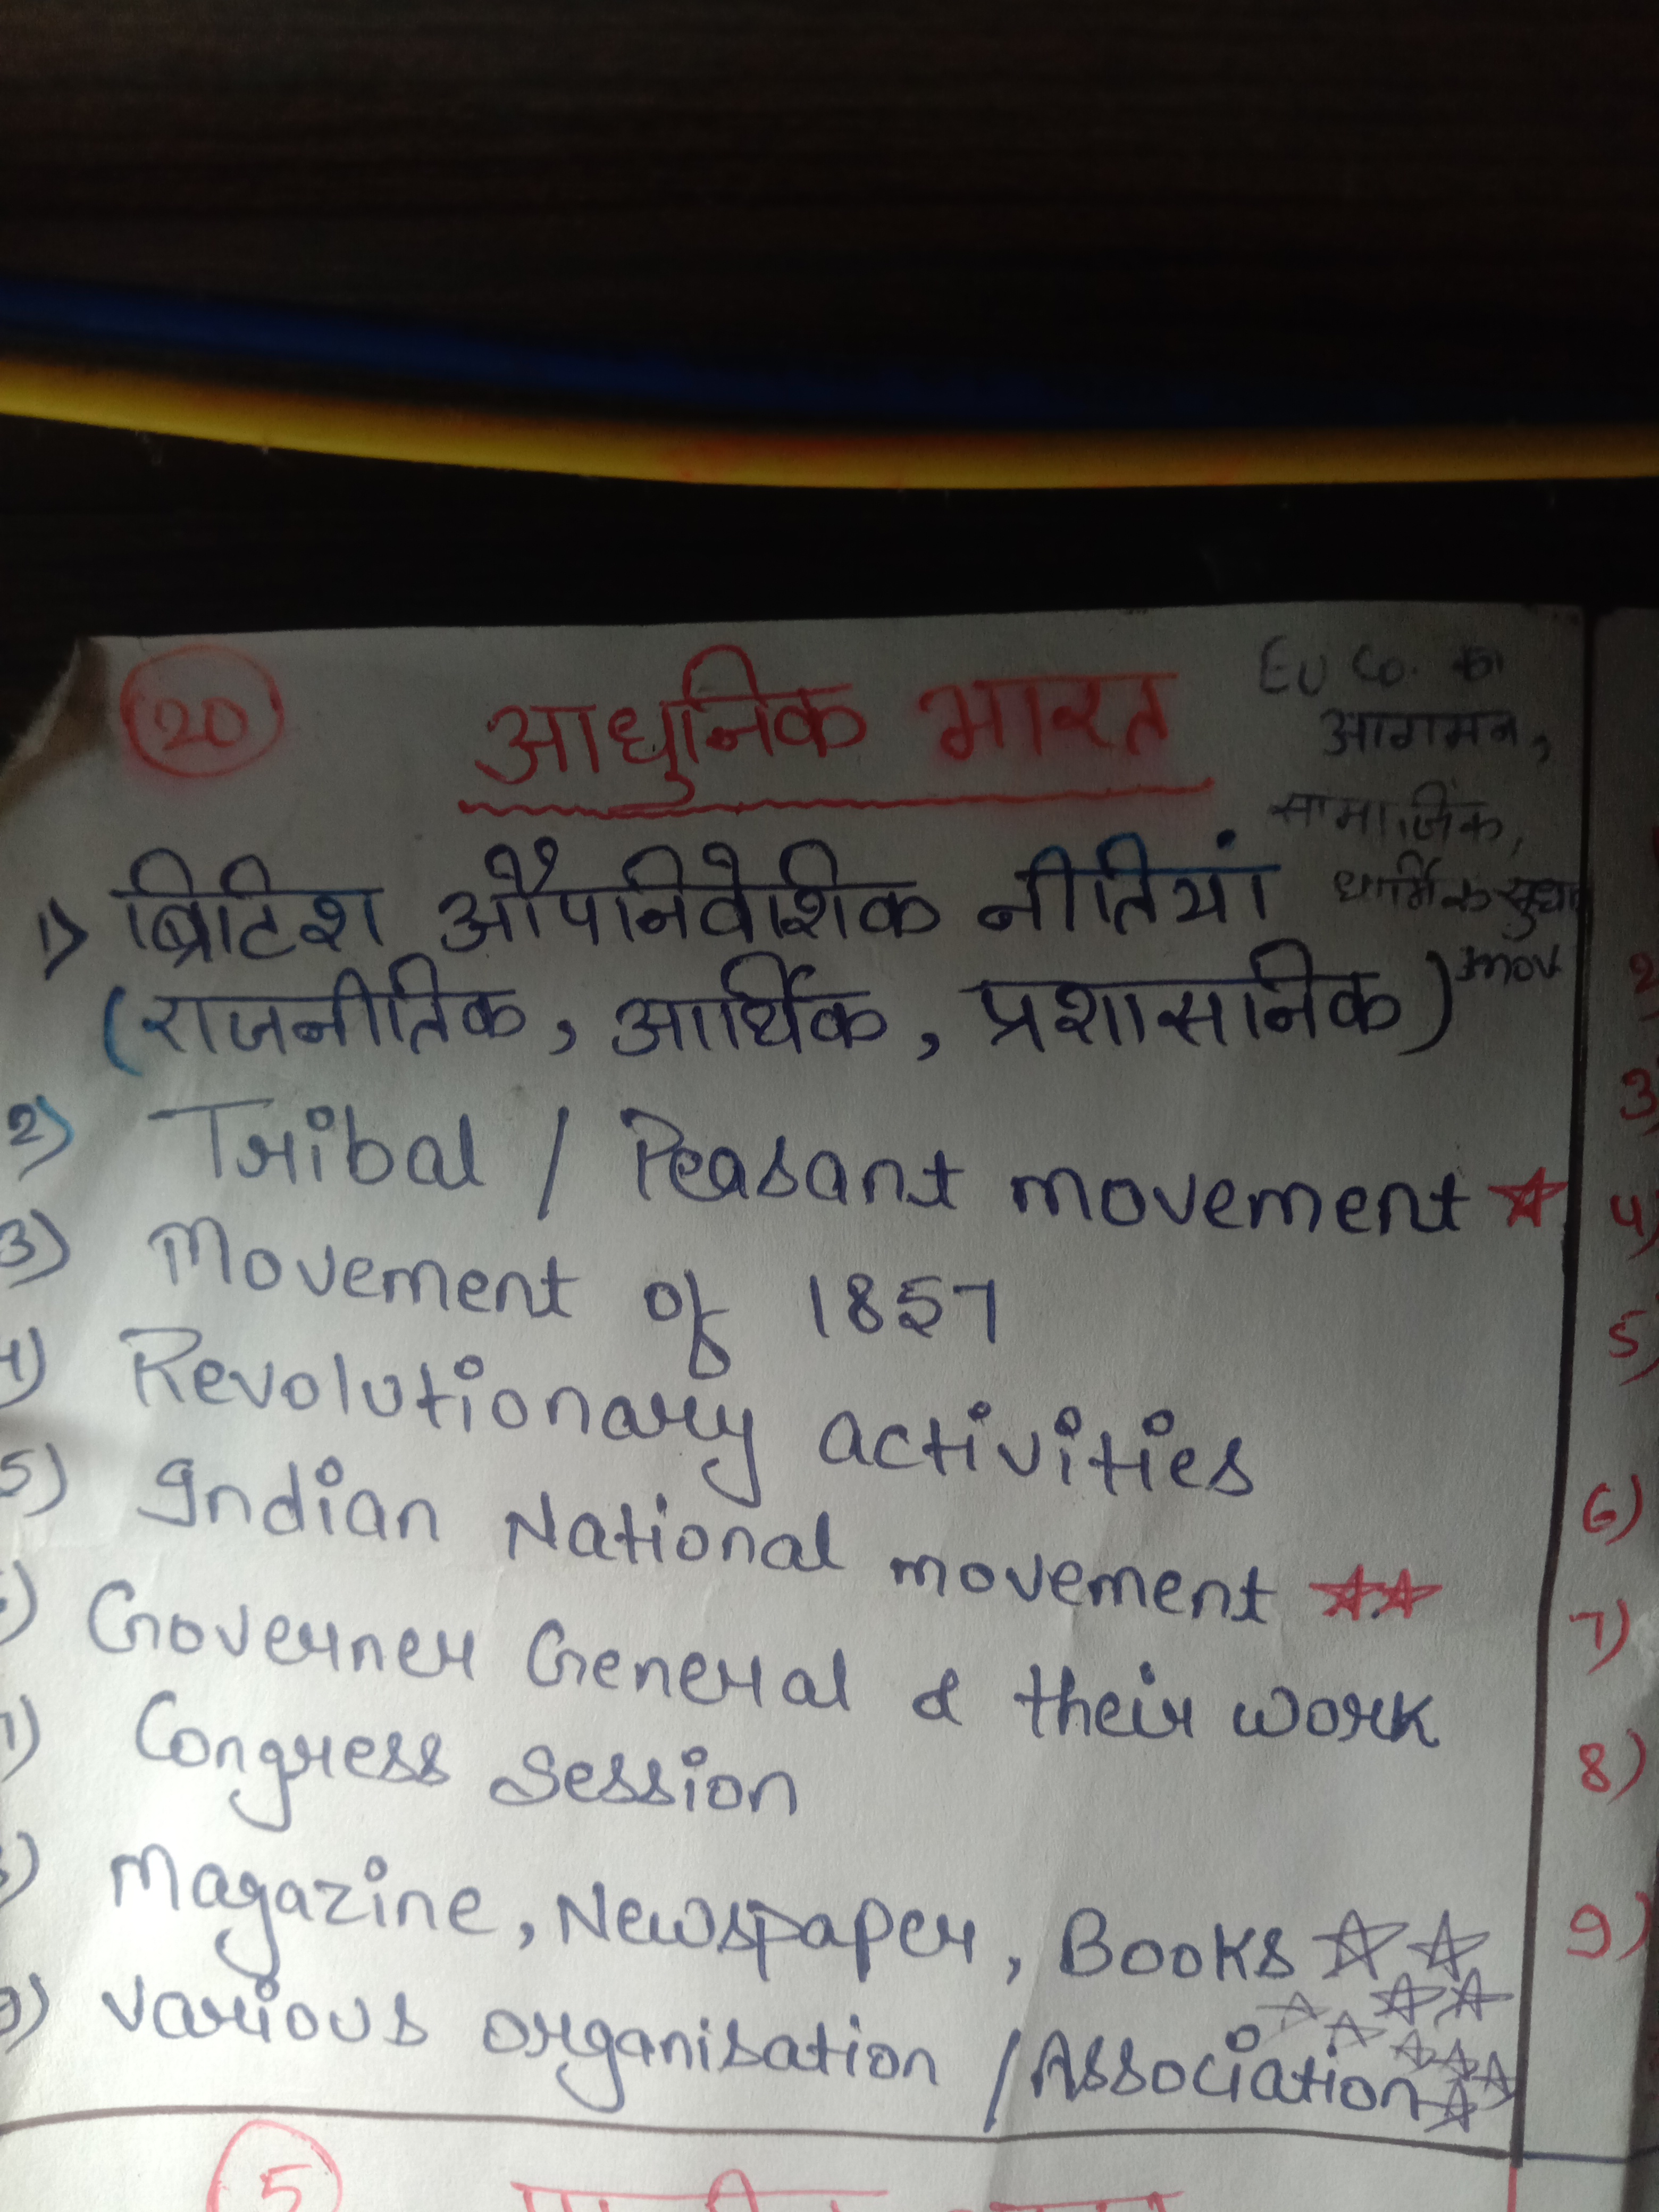 20
आधुनिक भारत
EU Co. का
आगमन,
सामाजिक,
धार्मिक सुधार
mov
1) ब्रिटिश औपनिवेशिक नीतियां
(राजनीतिक, आर्थिक, प्रशासनिक)
2) Tribal / Peasant movement
3) Movement of 1857
4) Revolutionary activities
5) Indian National movement
) Governer General & their work
7) Congress Session
) Magazine, Newspaper, Books
9) Various organisation / Association
2)
3)
4)
5)
6)
7)
8)
9)
5